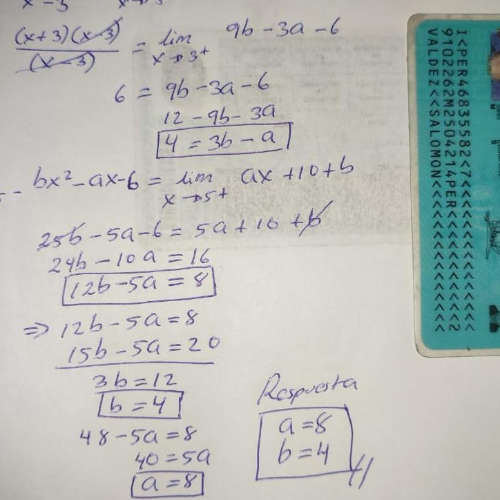 x - 3   x→3
(x+3)(x-3) / (x-3) = lim x→3+ 9b-3a-6
6 = 9b-3a-6
12 - 9b-3a
4 = 3b-a
bx²-ax-6 = lim x→5+ ax+10+b
25b-5a-6 = 5a+10+b
24b-10a = 16
12b-5a = 8
⇒ 12b-5a = 8
15b-5a = 20
3b = 12
b = 4
48-5a = 8
40 = 5a
a = 8
Respuesta
a = 8
b = 4
I<PER46835582<7<<<<<<<<<<<<<<
9102262M2504214PER<<<<<<<<<<<2
VALDEZ<<SALOMON<<<<<<<<<<<<<<<